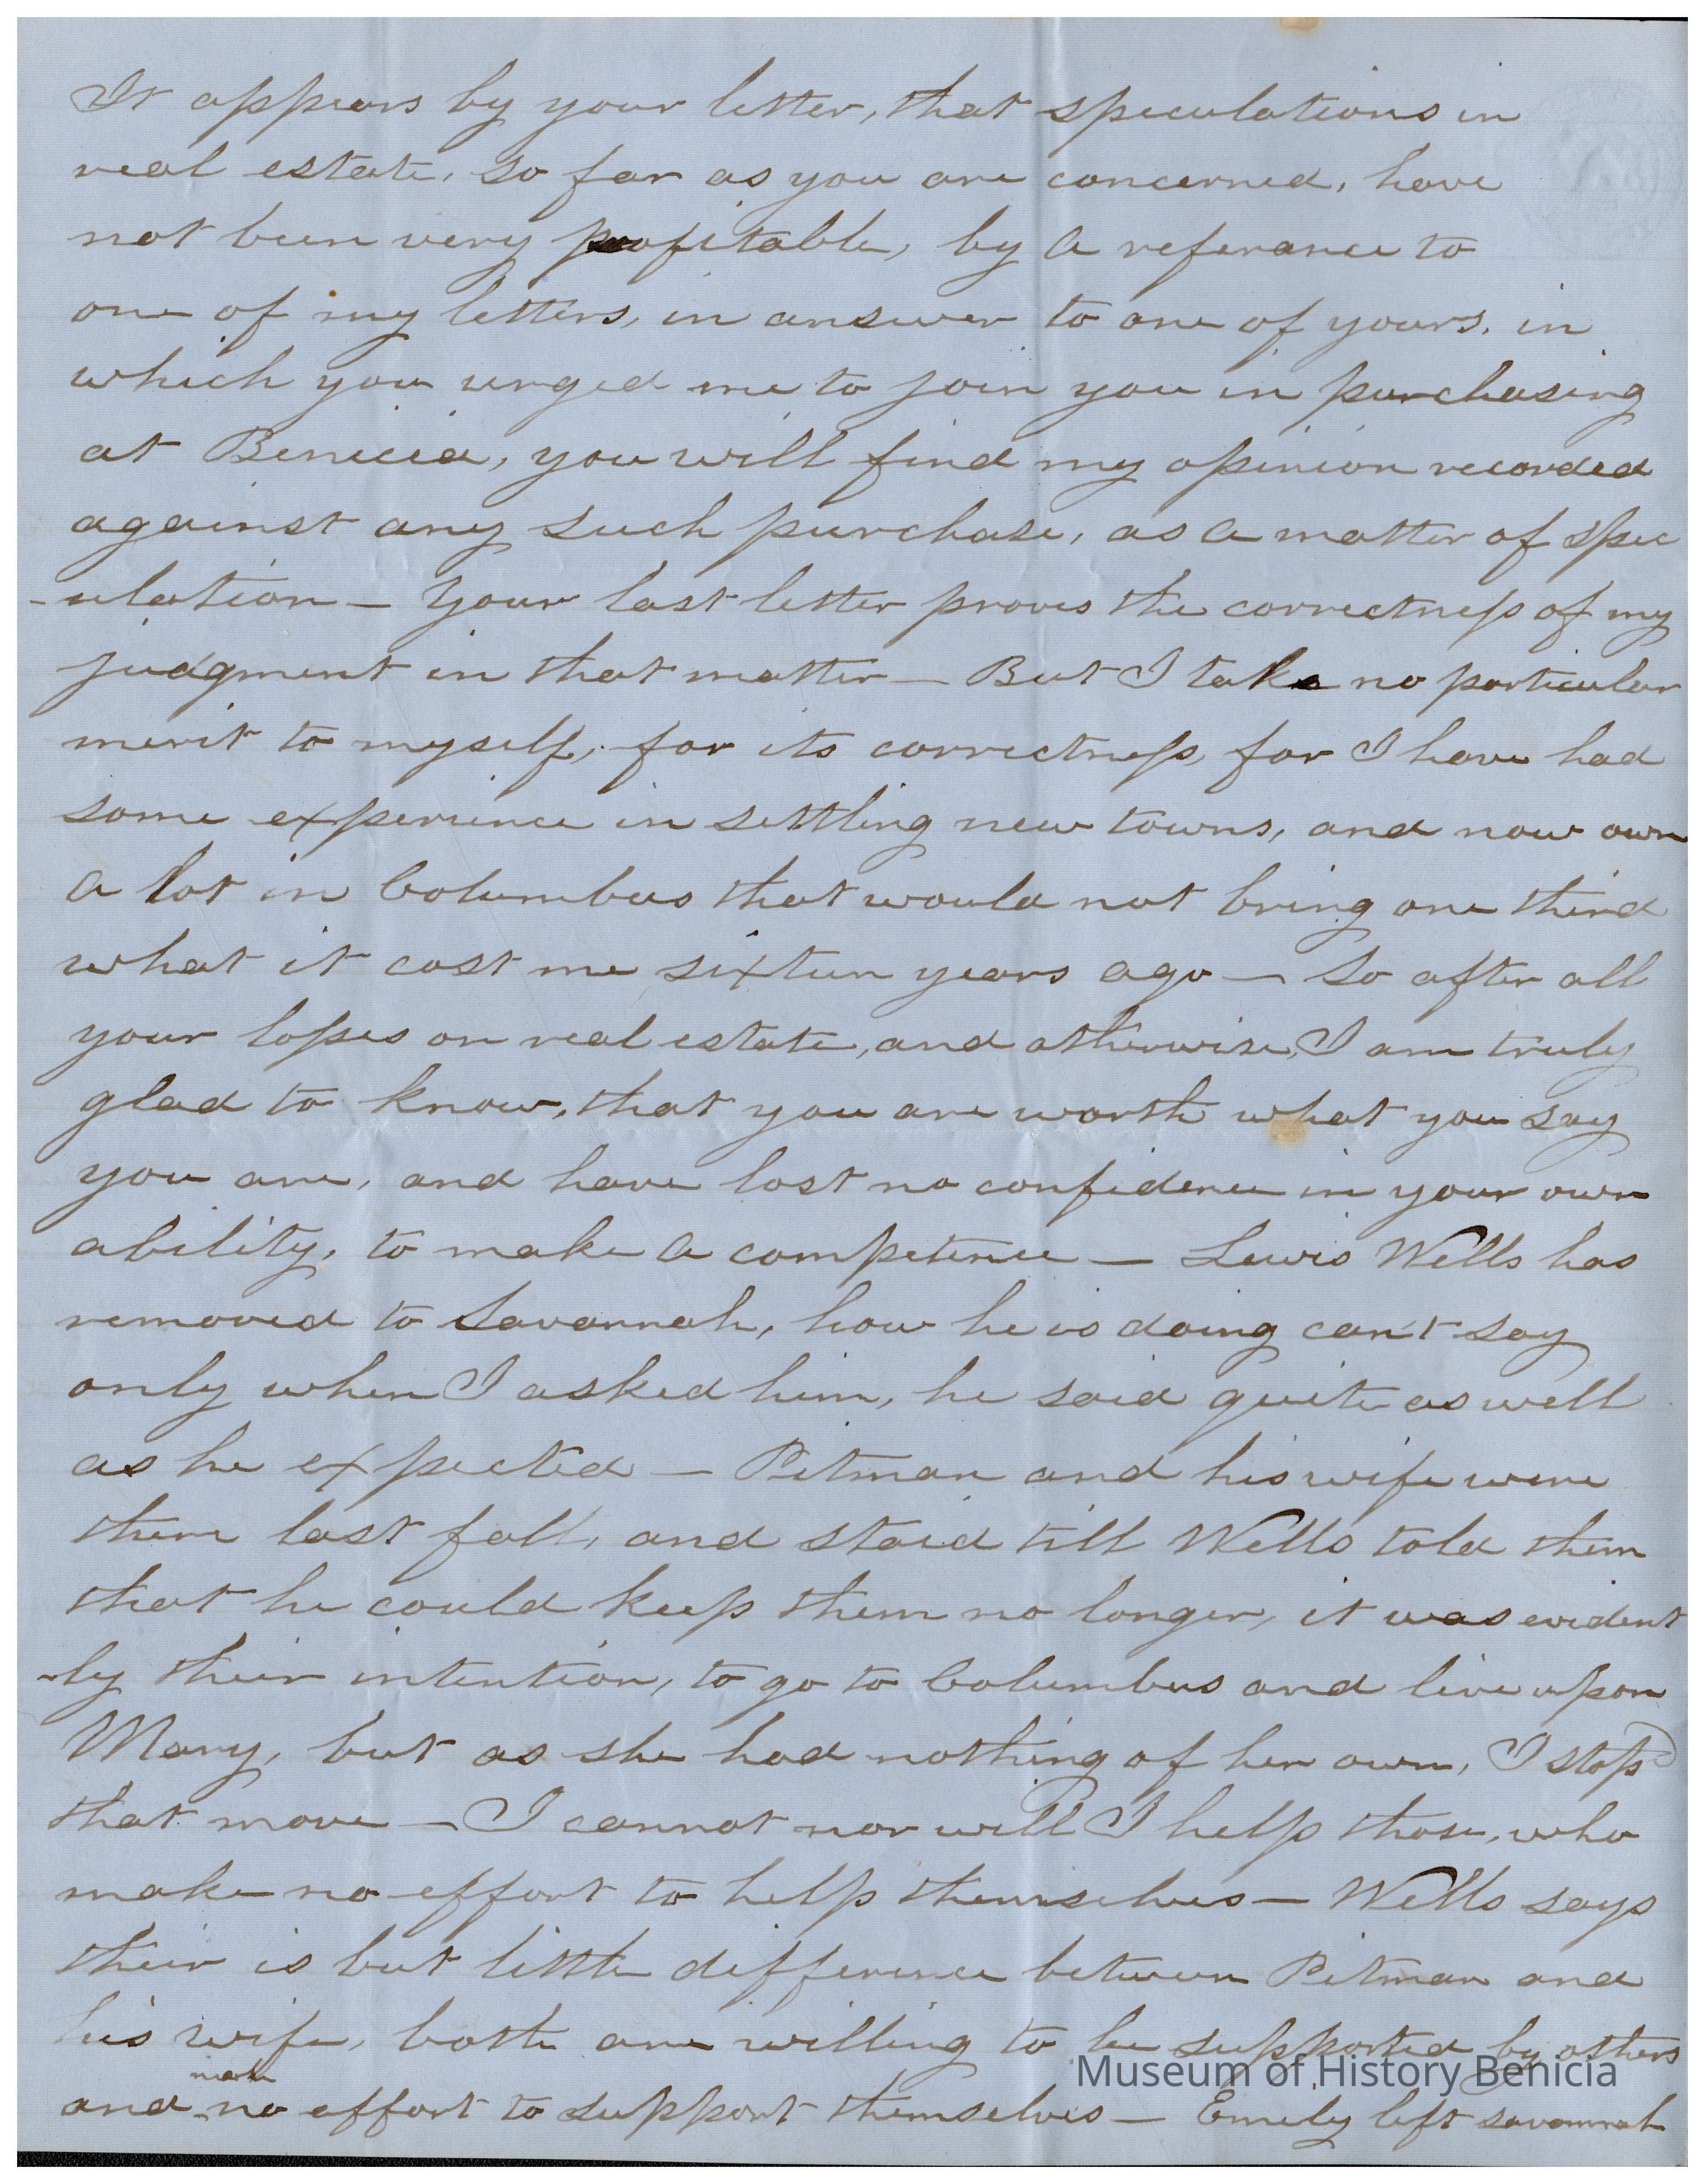 It appears by your letter, that speculations in
real estate, so far as you are concerned, have
not been very profitable, by a referance to
one of my letters, in answer to one of yours, in
which you urged me to join you in purchasing
at Benicia, you will find my opinion recorded
against any such purchase, as a matter of spec
-ulation – Your last letter proves the correctness of my
judgment in that matter – But I take no particular
merit to myself, for its correctness, for I have had
some experience in settling new towns, and now own
a lot in Columbus that would not bring one third
what it cost me sixteen years ago – So after all
your losses on real estate, and otherwise, I am truly
glad to know, that you are worth what you say
you are, and have lost no confidence in your own
ability, to make a competence – Lewis Wells has
removed to Savannah, how he is doing can't say
only when I asked him, he said quite as well
as he expected – Pitman and his wife were
there last fall, and staid till Wells told them
that he could keep them no longer, it was evident
-ly their intention, to go to Columbus and live upon
Mary, but as she had nothing of her own, I stopd
that move – I cannot nor will I help those, who
make no effort to help themselves – Wells says
their is but little difference between Pitman and
his wife, both are willing to be supported by others
and make no effort to support themselves – Emily left Savannah
Museum of History Benicia